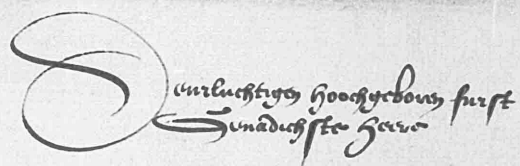 Deurluchtigen hoochgeboren furst
Genadichste herre